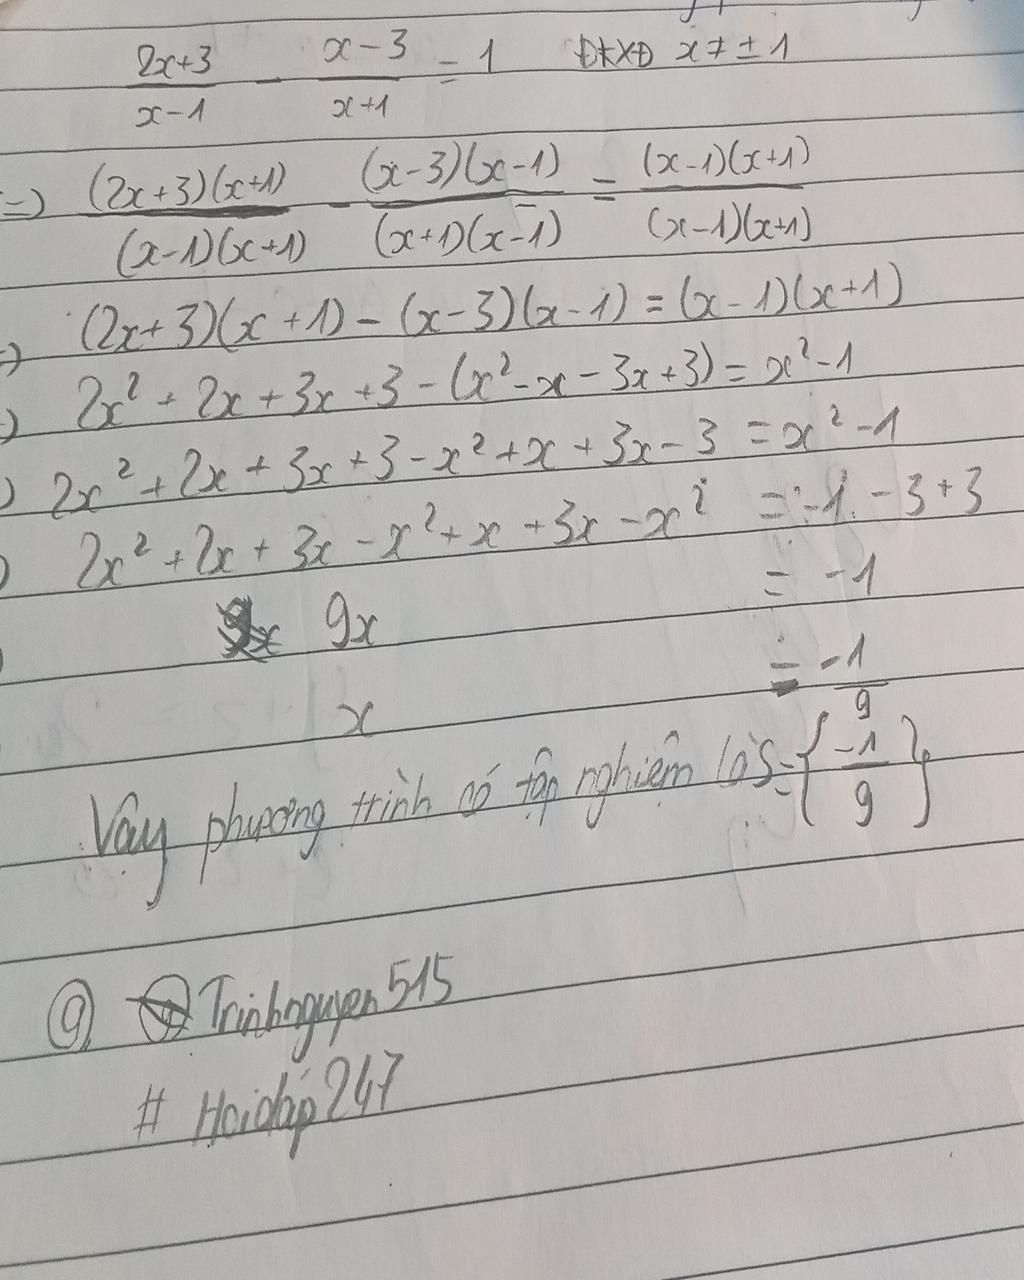 2x+3/x-1 - x-3/x+1 = 1 ĐKXĐ x ≠ ± 1
=) (2x+3)(x+1)/(x-1)(x+1) - (x-3)(x-1)/(x+1)(x-1) = (x-1)(x+1)/(x-1)(x+1)
=) (2x+3)(x+1) - (x-3)(x-1) = (x-1)(x+1)
=) 2x² + 2x + 3x + 3 - (x² - x - 3x + 3) = x² - 1
) 2x² + 2x + 3x + 3 - x² + x + 3x - 3 = x² - 1
) 2x² + 2x + 3x - x² + x + 3x - x² = -1 - 3 + 3
) 9x = -1
x = -1/9
Vậy phương trình có tập nghiệm là S = {-1/9}
@ Trinhnguyen515
# Hoidap247